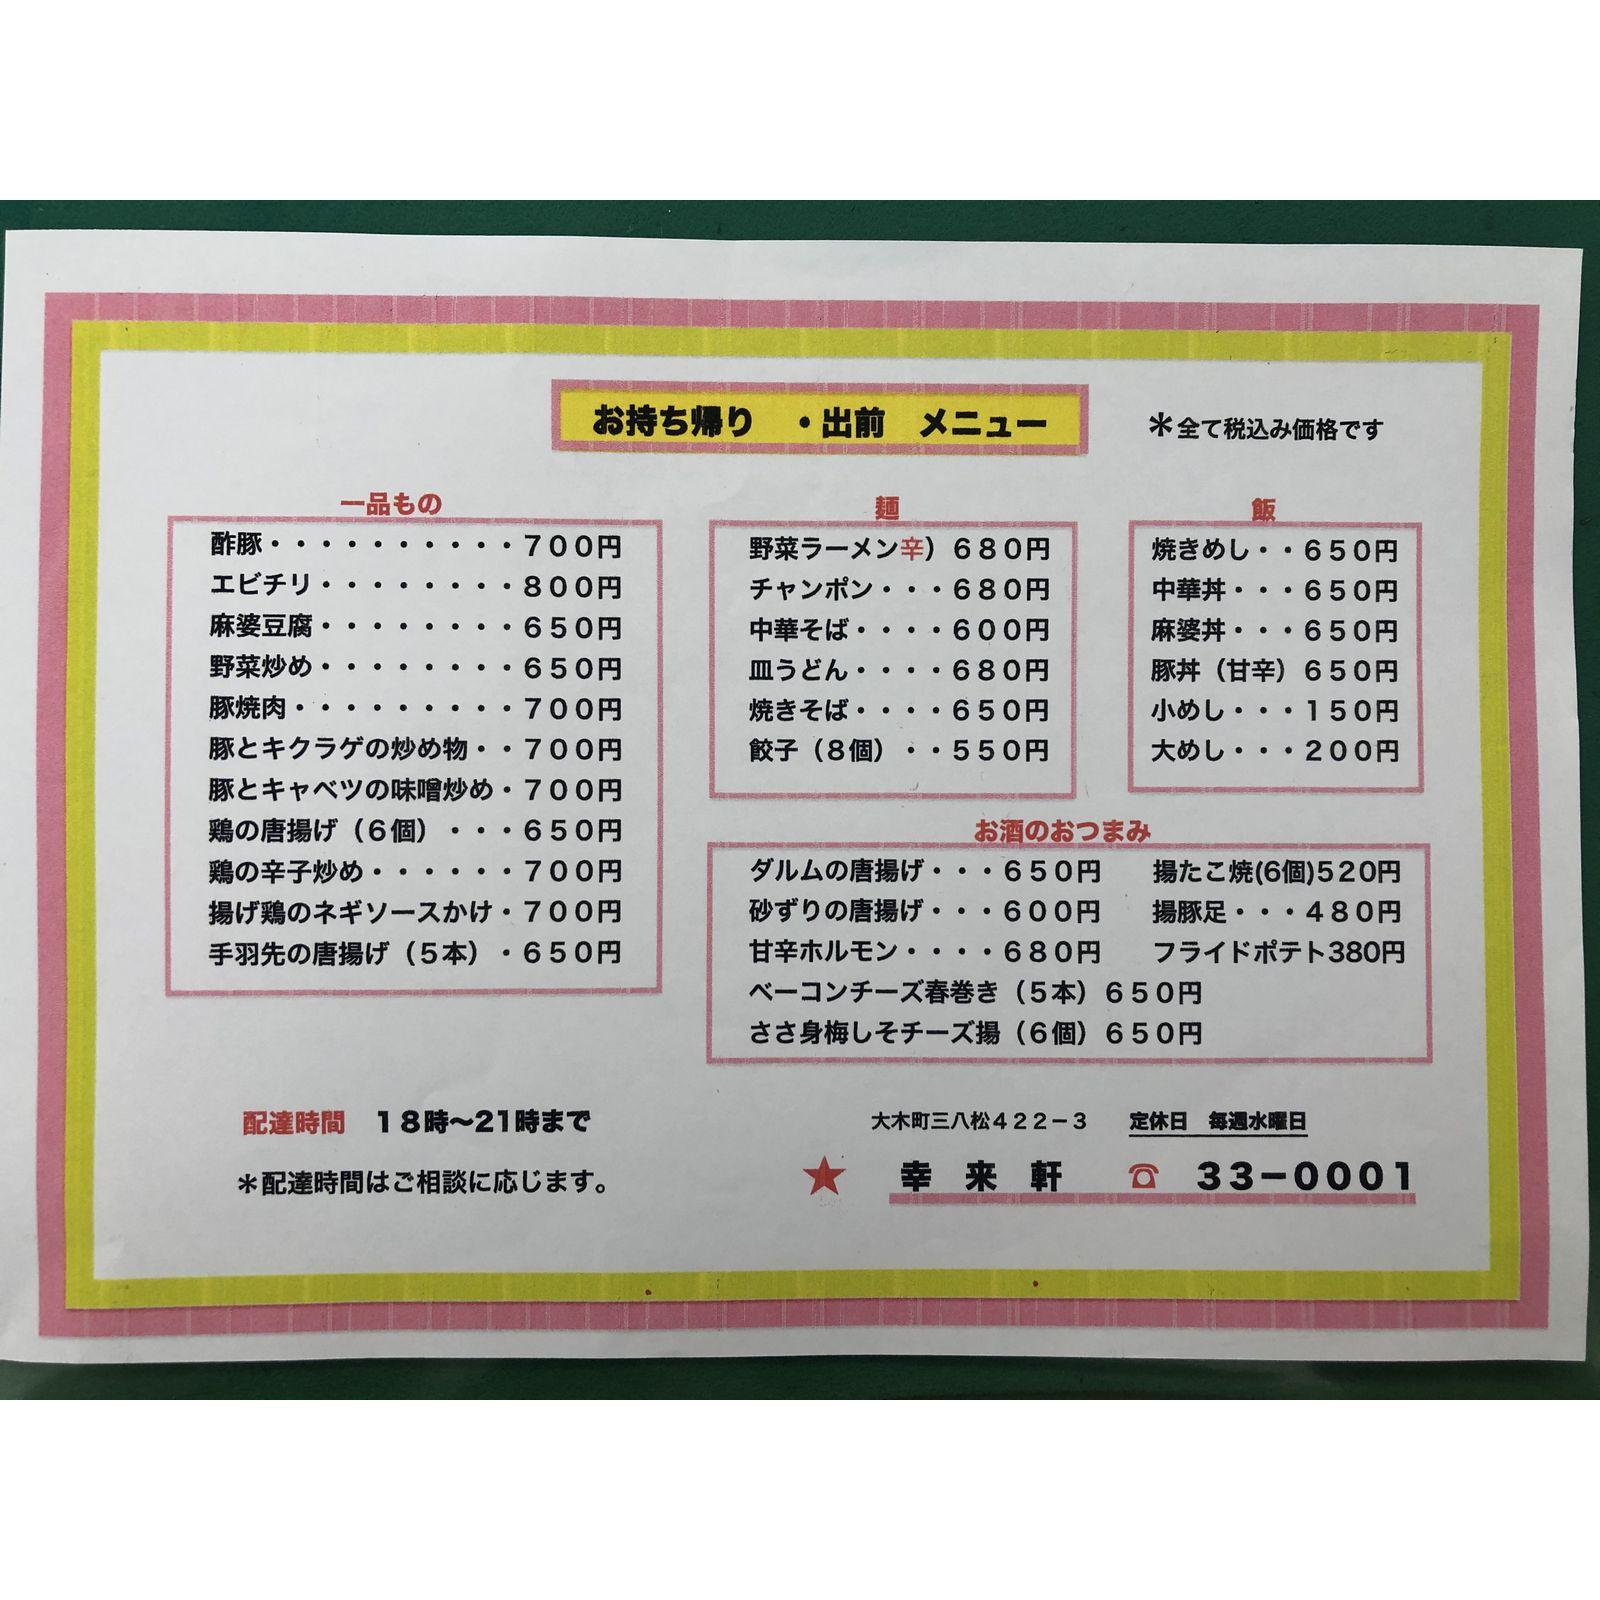 お持ち帰り ・出前 メニュー
＊全て税込み価格です
一品もの
酢豚・・・・・・・・・・７００円
エビチリ・・・・・・・・８００円
麻婆豆腐・・・・・・・・６５０円
野菜炒め・・・・・・・・６５０円
豚焼肉・・・・・・・・・７００円
豚とキクラゲの炒め物・・７００円
豚とキャベツの味噌炒め・７００円
鶏の唐揚げ（６個）・・・６５０円
鶏の辛子炒め・・・・・・７００円
揚げ鶏のネギソースかけ・７００円
手羽先の唐揚げ（５本）・６５０円
麺
野菜ラーメン辛）６８０円
チャンポン・・・６８０円
中華そば・・・・６００円
皿うどん・・・・６８０円
焼きそば・・・・６５０円
餃子（８個）・・５５０円
飯
焼きめし・・６５０円
中華丼・・・６５０円
麻婆丼・・・６５０円
豚丼（甘辛）６５０円
小めし・・・１５０円
大めし・・・２００円
お酒のおつまみ
ダルムの唐揚げ・・・６５０円
砂ずりの唐揚げ・・・６００円
甘辛ホルモン・・・・６８０円
ベーコンチーズ春巻き（５本）６５０円
ささ身梅しそチーズ揚（６個）６５０円
揚たこ焼(6個)５２０円
揚豚足・・・４８０円
フライドポテト380円
配達時間 １８時〜21時まで
＊配達時間はご相談に応じます。
大木町三八松４２２−３ 定休日 毎週水曜日
★ 幸来軒 ☎ ３３−０００１